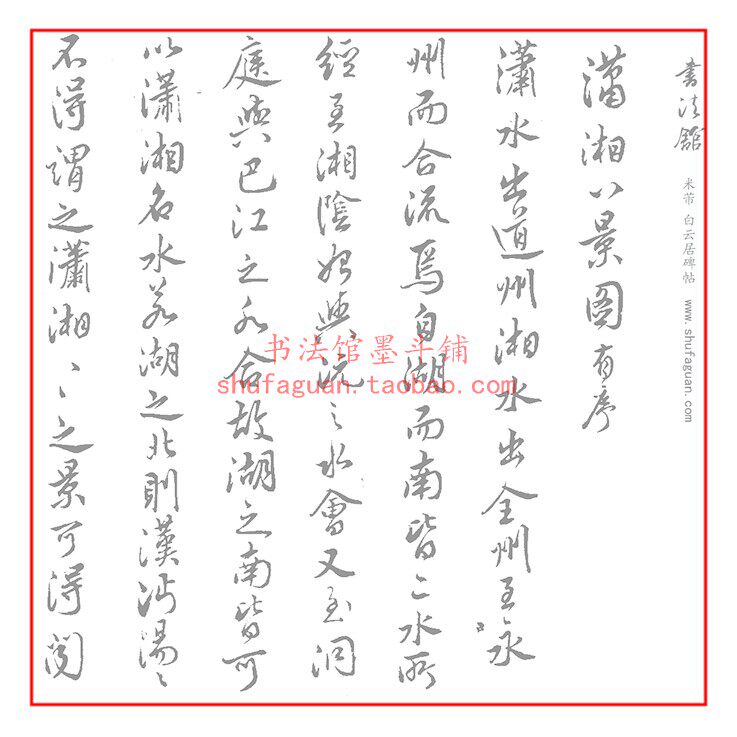 书法馆
米芾 白云居碑帖 www.shufaguan.com
潇湘八景图有序
瀟水出道州湘水出全州至永
州而合流焉自湖而南皆二水所
經至湘陰始與沅之水會又至洞
庭與巴江之水合故湖之南皆可
以瀟湘名水若湖之北則漢沔湯湯
不得謂之瀟湘瀟湘之景可得聞
书法馆墨斗铺
shufaguan.taobao.com